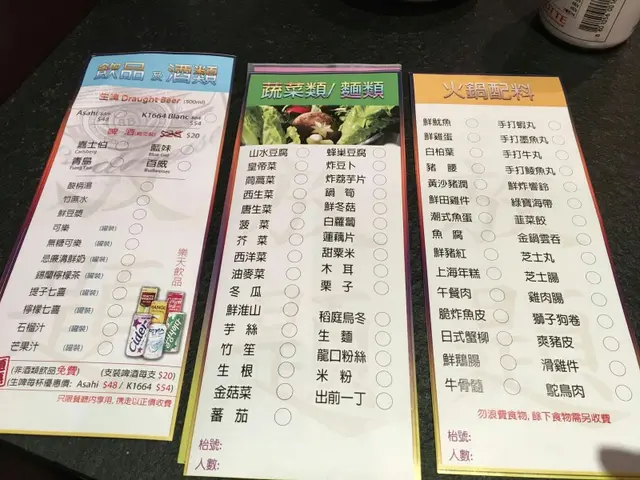 飲品 及 酒類
生啤 Draught Beer (500ml)
Asahi $48
K1664 Blanc $54
啤酒 $20
嘉士伯 藍妹
Carlsberg Blue Girl
青島 百威
Tsing Tao Budweiser
酸梅湯
竹蔗水
鮮豆漿
可樂 (罐裝)
無糖可樂 (罐裝)
忌廉溝鮮奶 (罐裝)
錫蘭檸檬茶 (罐裝)
提子七喜 (罐裝)
檸檬七喜 (罐裝)
石榴汁 (罐裝)
芒果汁 (罐裝)
樂天飲品
(非酒類飲品免費) (支裝啤酒每支 $20)
(生啤每杯優惠價: Asahi $48 / K1664 $54)
只限餐廳內享用, 携走以正價收費
蔬菜類/ 麵類
山水豆腐 蜂巢豆腐
皇帝菜 炸豆卜
茼蒿菜 炸荔芋片
西生菜 鍋筍
唐生菜 鮮冬菇
菠菜 白蘿蔔
芥菜 蓮藕片
西洋菜 甜粟米
油麥菜 木耳
冬瓜 栗子
鮮淮山 稻庭烏冬
芋絲 生麵
竹笙 龍口粉絲
生根 米粉
金菇菜 出前一丁
蕃茄
枱號:
人數:
火鍋配料
鮮魷魚 手打蝦丸
鮮雞蛋 手打墨魚丸
白柏葉 手打牛丸
豬腰 手打鯪魚丸
黃沙豬潤 鮮炸響鈴
鮮田雞件 綠寶海帶
潮式魚蛋 韭菜餃
魚腐 金鍋雲吞
鮮豬紅 芝士丸
上海年糕 芝士腸
午餐肉 雞肉腸
脆炸魚皮 獅子狗卷
日式蟹柳 爽豬皮
鮮鵝腸 滑雞件
牛骨髓 鴕鳥肉
勿浪費食物, 餘下食物需另收費
枱號:
人數: